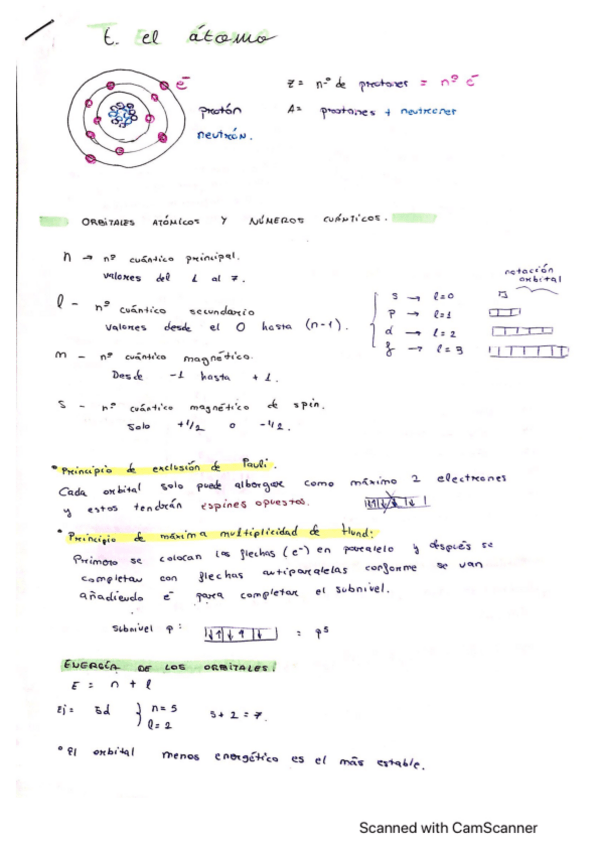 t. el átomo
e⁻
protón
neutrón.
Z = nº de protones = nº e⁻
A = protones + neutrones
ORBITALES ATÓMICOS Y NÚMEROS CUÁNTICOS.
n → nº cuántico principal.
valores del 1 al 7.
l - nº cuántico secundario
valores desde el 0 hasta (n-1).
notación
orbital
s → l=0
p → l=1
d → l=2
f → l=3
m - nº cuántico magnético.
Desde -l hasta +l.
s - nº cuántico magnético de spin.
solo +1/2 o -1/2.
* Principio de exclusión de Pauli.
Cada orbital solo puede albergar como máximo 2 electrones
y estos tendrán espines opuestos.
* Principio de máxima multiplicidad de Hund:
Primero se colocan las flechas (e⁻) en paralelo y después se
completan con flechas antiparalelas conforme se van
añadiendo e⁻ para completar el subnivel.
subnivel p: = p⁵
ENERGÍA DE LOS ORBITALES:
E = n + l
Ej = 5d } n=5 l=2 5+2=7.
* El orbital menos energético es el más estable.
Scanned with CamScanner